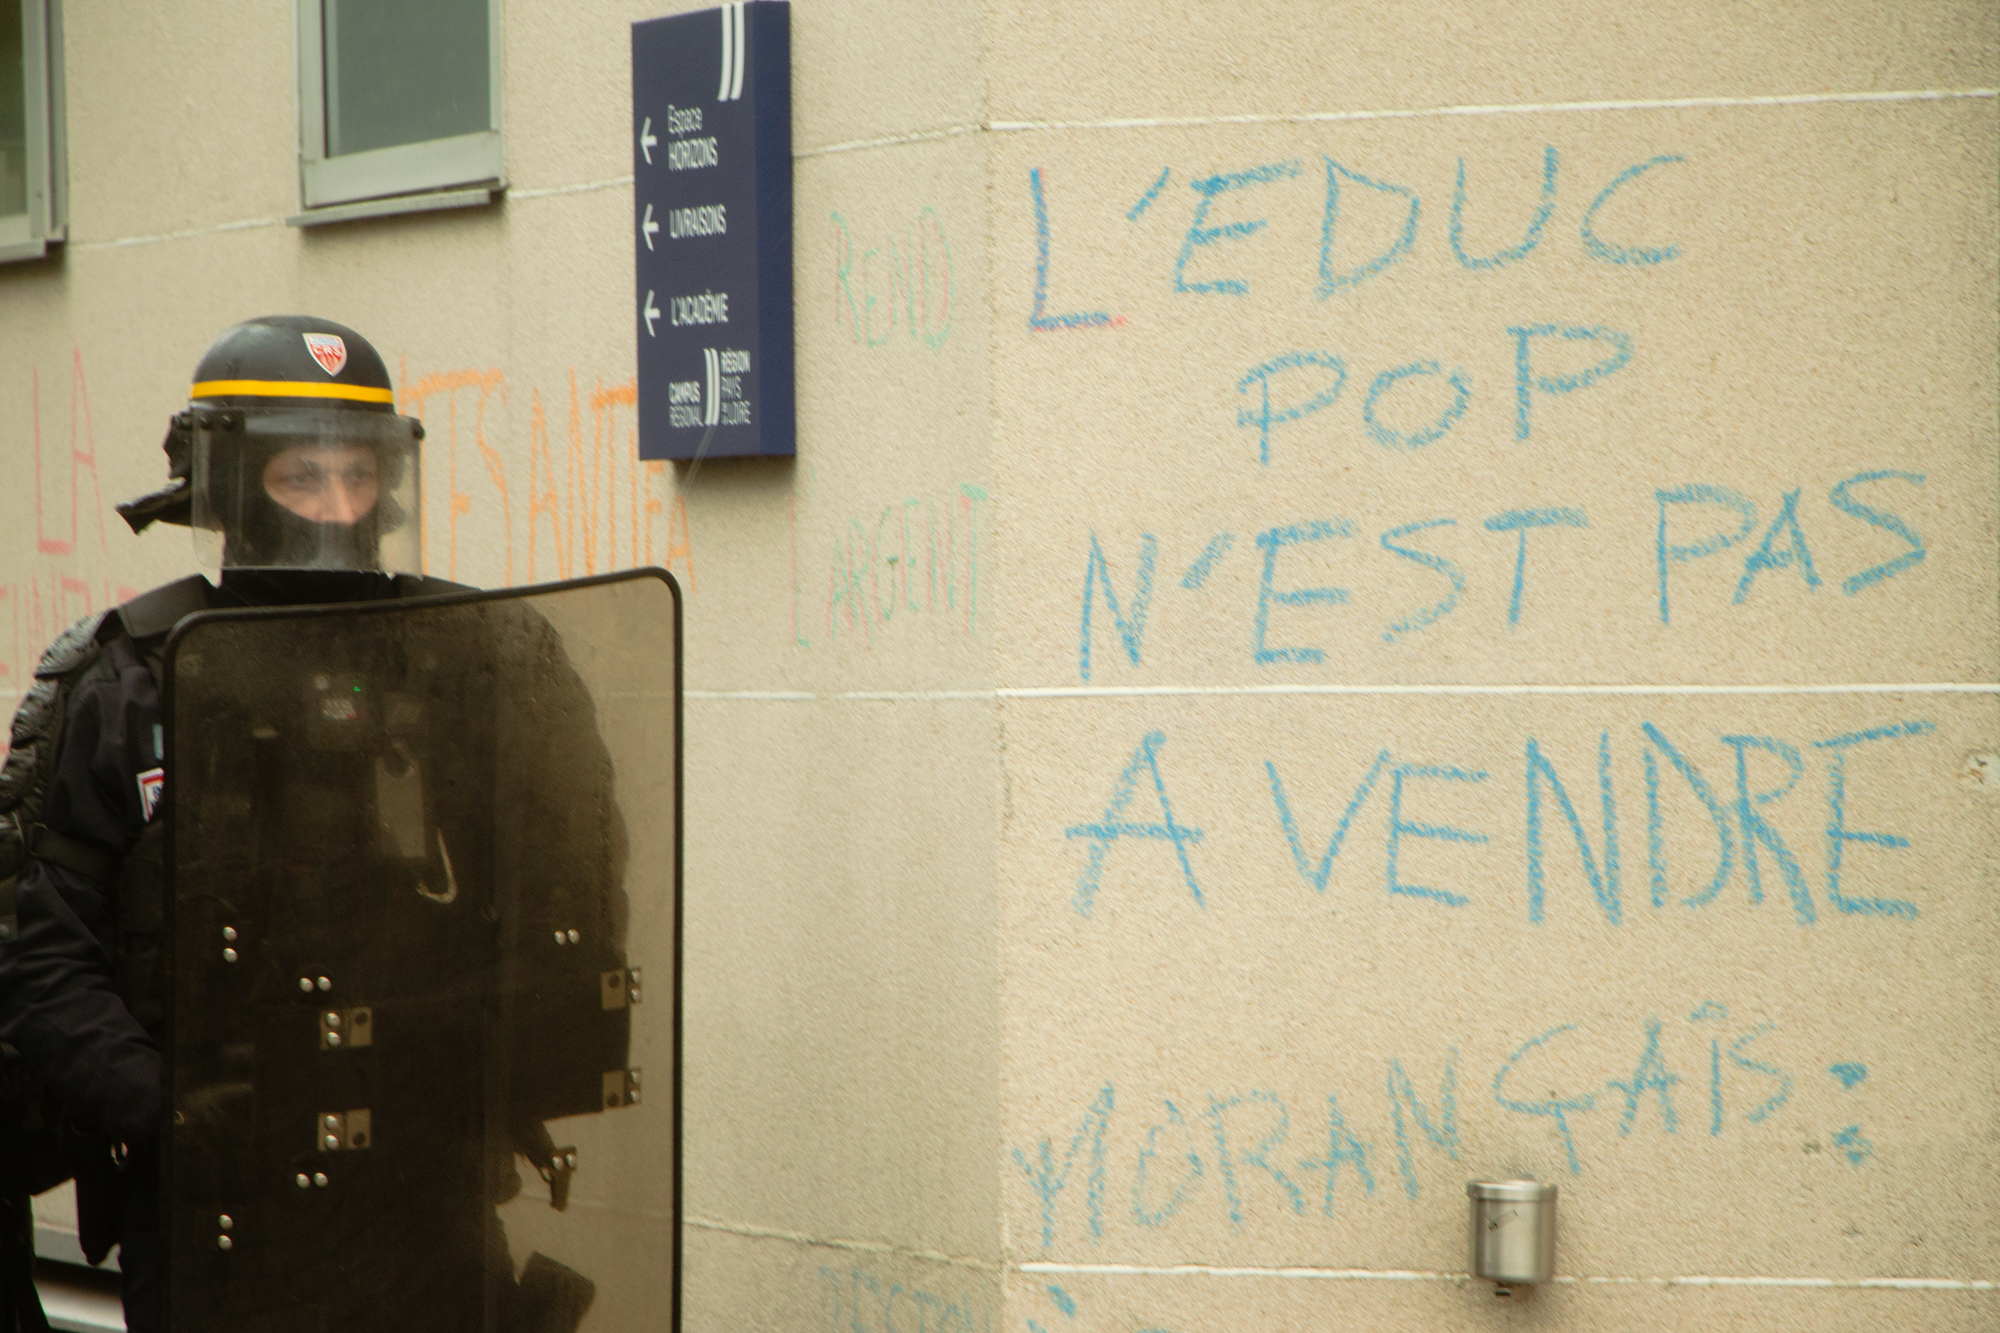 Espace
HORIZONS
LIVRAISONS
L'ACADÉMIE
CAMPUS
RÉGIONAL
RÉGION
PAYS
DE LA LOIRE
CRS
LA
TES ANTIFA
REND
L'ARGENT
L'EDUC
POP
N'EST PAS
A VENDRE
MORANÇAIS :